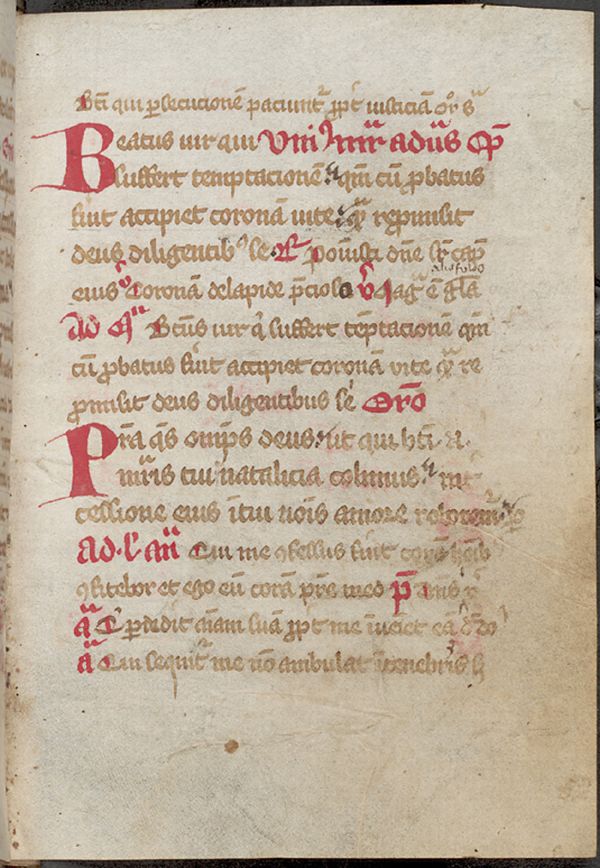 Bt̄i qui ꝑsecucionē paciunt᷑ ꝓpt̉ iusticiā
Beatus uir qui Vni᷑ mr̄is ad uꝰs cap̄
suffert temptacionē qm̄ cū ꝓbatus
fūit accipiet coronā uite qͣ repromisit
deus diligentibꝰ se. R᷑ posuisti dn̄e sr̄ cap̄
alis folio
eius Coronā de lapide p̄cioso v̊ Mag̅ ē gl̄a
Ad mͣ Btūs uir q̇ suffert tēptacionē qm̄
cū ꝓbatus fūit accipiet coronā vite qͣ re
ꝓmisit deus diligentibus sē Orō
Pr̄a q̄s omīps deus ut qui bt̄i .N.
mr̄is tui natalicia colimus int̉
cessione eius ī tui nōis amore roboremꝰ
ad .l. an̄ Qui me ꝯfessus fūit corā hōibꝫ
ꝯfitebor et ego eū corā pr̄e meo p̄
aͣ Q̇ ꝑdedit aīam suā ꝓpt̉ me īueīet eā
aͣ Qui sequit᷑ me nō ambulat ī tenebris